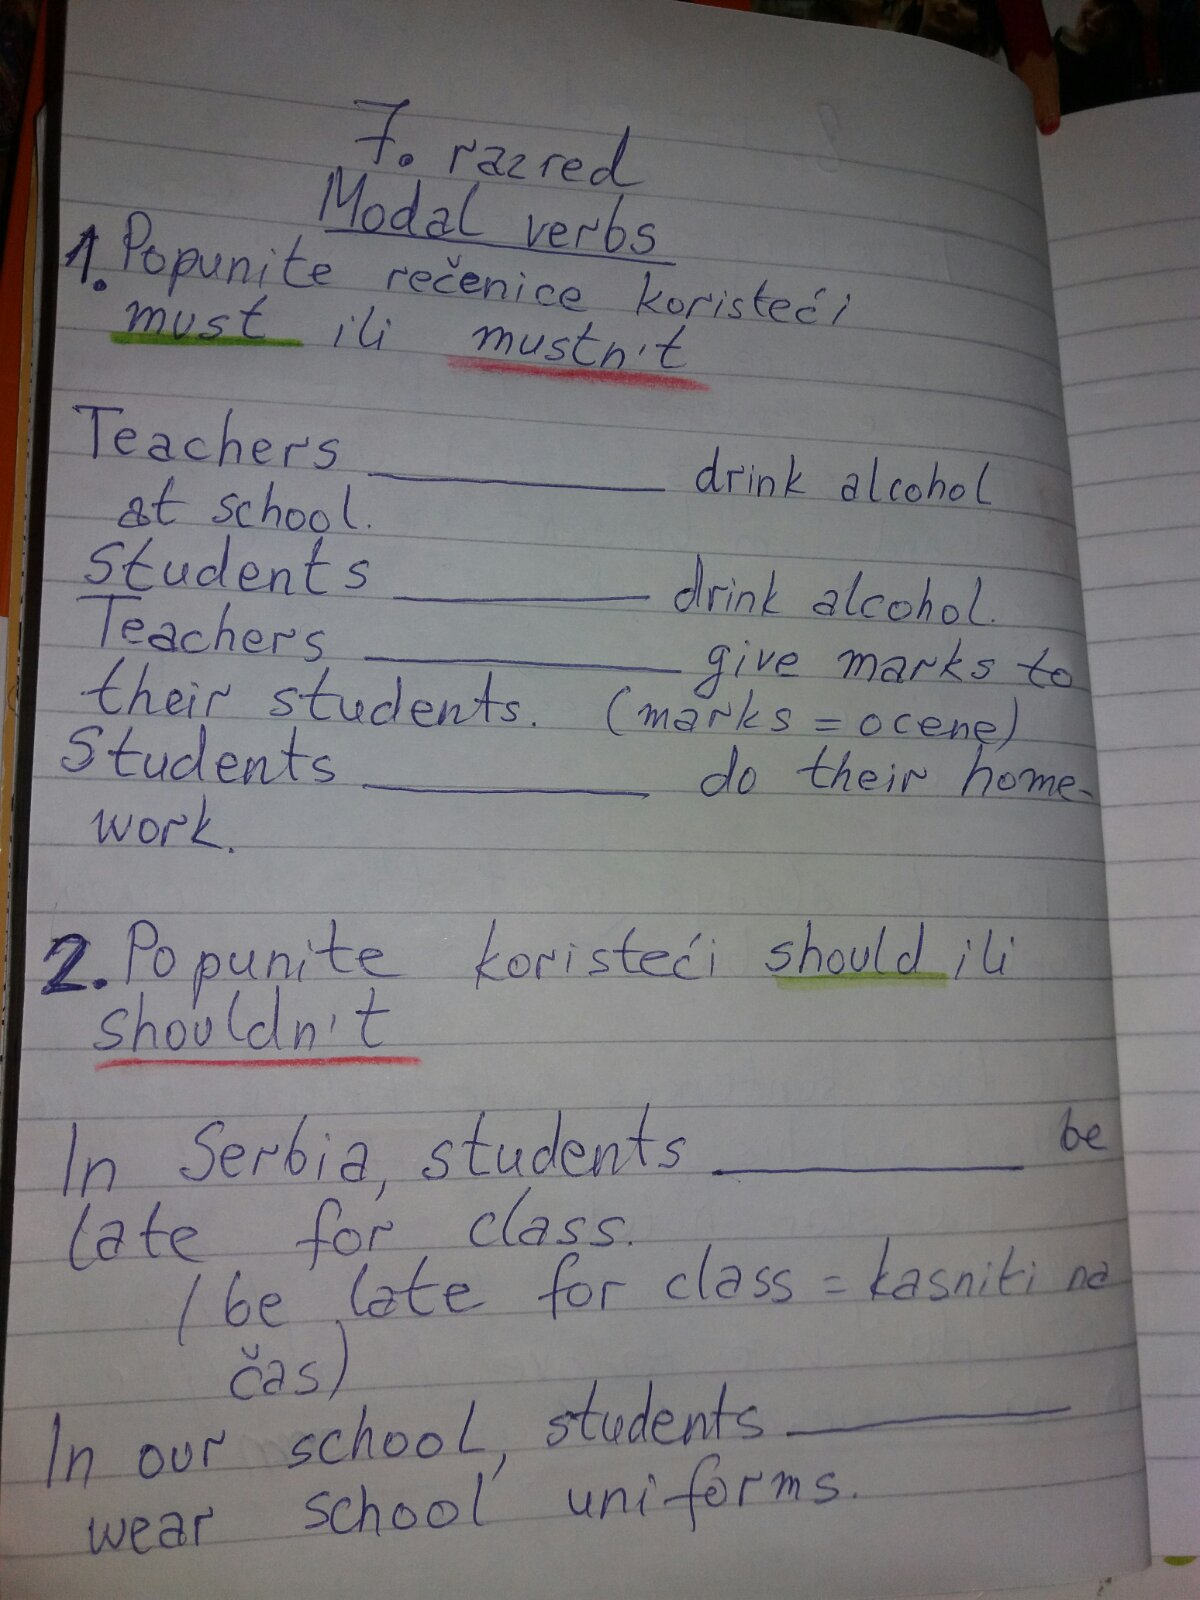 7. razred
Modal verbs
1. Popunite rečenice koristeći
must ili mustn't
Teachers __________ drink alcohol
at school.
Students __________ drink alcohol.
Teachers __________ give marks to
their students. (marks = ocene)
Students __________ do their home-
work.
2. Popunite koristeći should ili
shouldn't
In Serbia, students __________ be
late for class.
(be late for class = kasniti na
čas)
In our school, students __________
wear school uniforms.